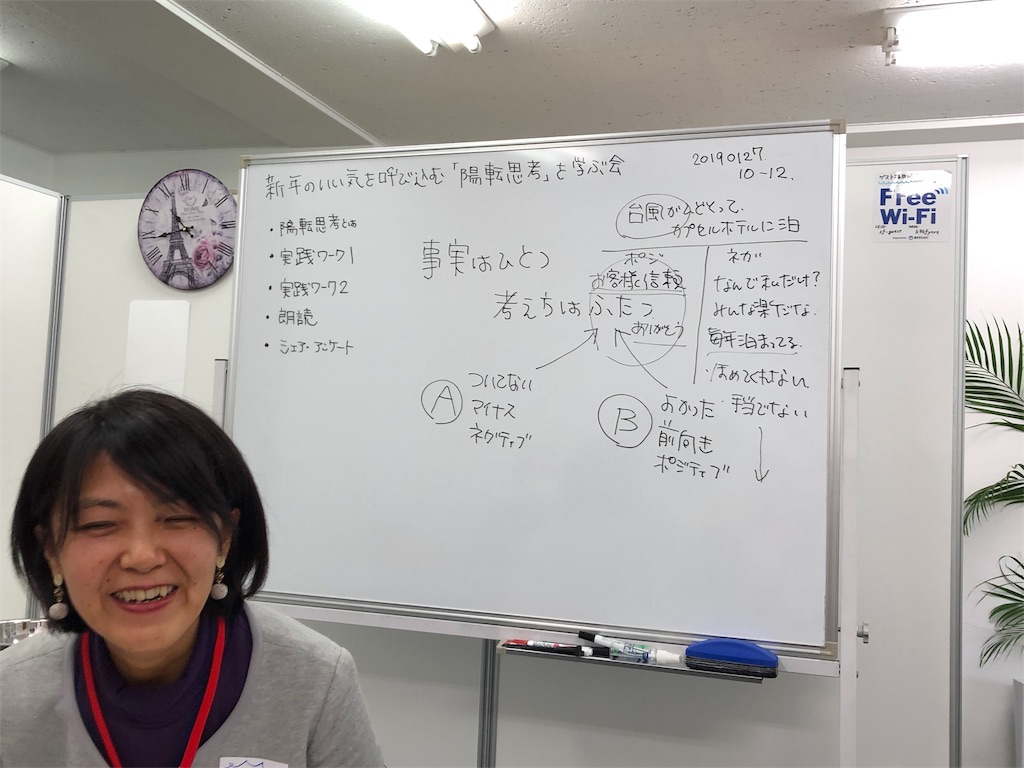 新年のいい気を呼び込む「陽転思考」を学ぶ会
20190127.
10-12.
・陽転思考とは
・実践ワーク1
・実践ワーク2
・朗読
・シェア・アンケート
事実はひとつ
考え方はふたつ
A
ついてない
マイナス
ネガティブ
B
よかった
前向き
ポジティブ
台風が
カプセルホテルに泊
ポジ
お客様信頼
ありがとう
ネガ
なんで私だけ?
みんな楽だな.
毎年泊まってる.
・ほめてくれない
・手当でない
Free
Wi-Fi